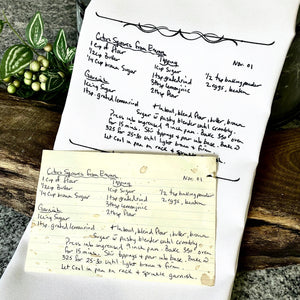 Citrus Squares from Emma Nov. 01
1 cup of flour
1/2 cup butter
1/4 cup brown sugar
Topping
1 cup Sugar
1 tsp grated rind
3 tbsp lemon juice
2 tbsp flour
1/2 tsp baking powder
2 eggs, beaten
Garnish:
Icing Sugar
1 tsp grated lemon rind
blend flour, butter, brown
Sugar w/ pastry blender until crumbly.
Press into ungreased 9 inch pan. Bake 350° oven
for 15 mins. Stir toppings + pour into base. Bake @
325 for 25-30 until light brown + firm.
Let cool in pan on rack + sprinkle garnish.
Citrus Squares from Emma Nov. 01
1 cup of flour
1/2 cup butter
1/4 cup brown sugar
Topping
1 cup Sugar
1 tsp grated rind
3 tbsp lemon juice
2 tbsp flour
1/2 tsp baking powder
2 eggs, beaten
Garnish:
Icing Sugar
1 tsp grated lemon rind
blend flour, butter, brown
Sugar w/ pastry blender until crumbly.
Press into ungreased 9 inch pan. Bake 350° oven
for 15 mins. Stir toppings + pour into base. Bake @
325 for 25-30 until light brown + firm.
Let cool in pan on rack + sprinkle garnish.